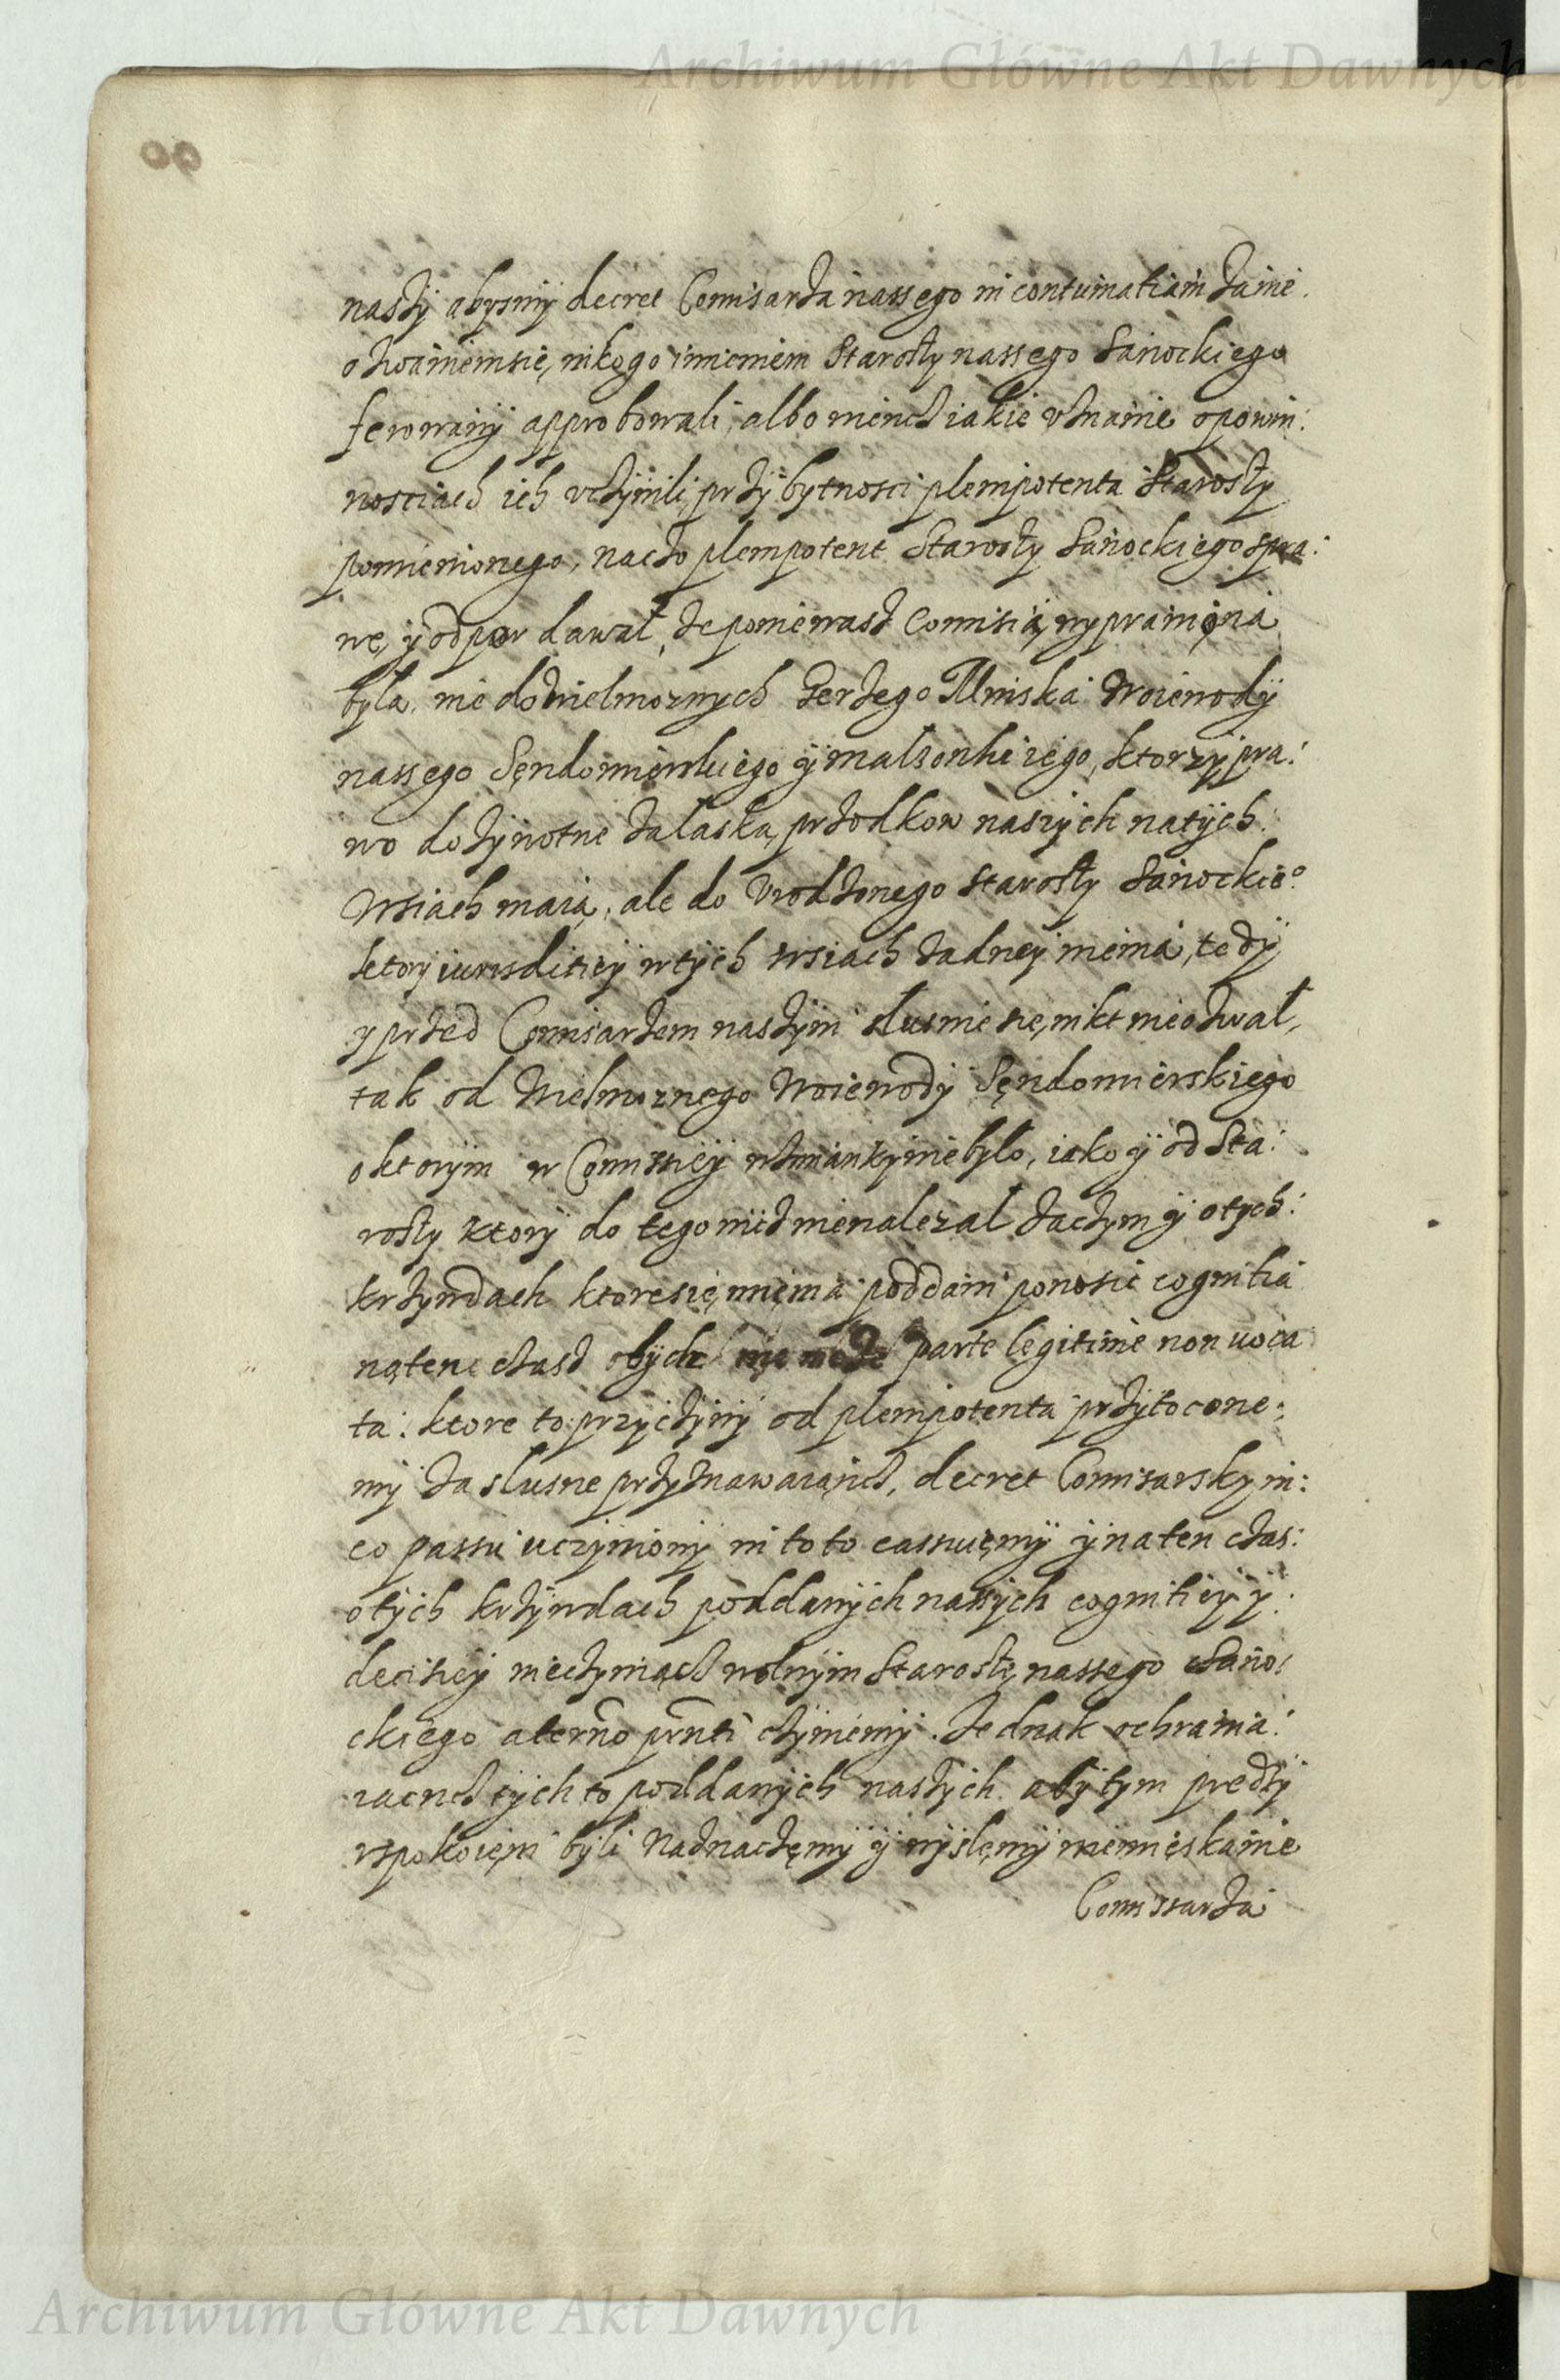 Archiwum Główne Akt Dawnych
90
naszÿ abysmÿ decret Comisarza nassego in contumatiam zanie
ozwaniem się, nikogo imieniem Starosty nassego Sanockiego
ferowanÿ approbowali, albo wiencz iakie vznanie opowin:
nosciach ich vczÿnili, przÿ bytnosci plenipotenta Starosty
pomienionego, naczo plenipotent Starosty Sanockiego spra:
wę, ÿ odpor dawał, że poniewasz Comisia, wyprawiona
była, nie do Wielmoznych Jerzego Mniska Woiewodÿ
nassego Sęndomirskiego ÿ malzonki iego, ktorzy pra:
wo dozÿwotne zalaską, przodkow naszÿch natÿch:
Wsiach maią, ale do Vrodzonego starosty Sanockieo
ktory iurisditieÿ wtÿch wsiach zadneÿ niema, tedÿ
y przed Comisarzem naszÿm slusnie się, nikt nieozwał,
tak od Wielmoznego Woiewodÿ Sęndomierskiego
o ktorÿm w Comissieÿ wzmiankÿ nie było, iako ÿ od Sta:
rosty ktorÿ do tego nicz nienalezal zaczym ÿ otych:
krzÿwdach ktore się, mięnia poddani ponosic cognitia
naten czasz bÿch parte legitime non uoca
ta: ktore to przyczÿnÿ od plenipotenta przÿtocone:
mÿ za slusne przÿznawaiąncz, decret Comisarsky in:
eo passu uczÿnionÿ in toto cassuięmÿ ÿ na ten czas:
otÿch krzÿwdach poddanÿch nassÿch cognitieÿ ÿ:
decisieÿ nieczÿniącz wolnÿm Starostę, nassego Sano:
ckiego a termo prnti czÿniemÿ. Jednak ochrania:
iacncz tÿch to poddanÿch naszÿch abÿ tym prędzÿ
vspokoięni bÿli Naznaczęmÿ ÿ wÿslęmÿ niemięskanie
Comissarza
Archiwum Główne Akt Dawnych